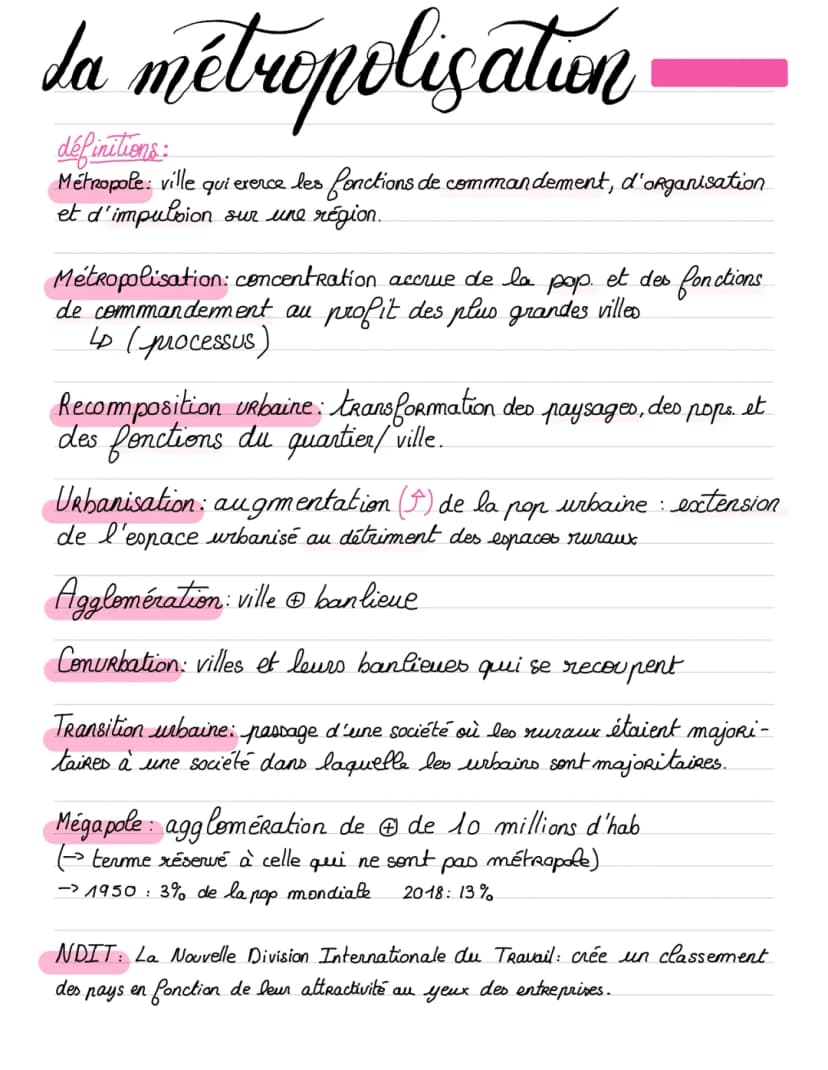 La métropolisation
définitions:
Métropole: ville qui exerce les fonctions de commandement, d'organisation
et d'impulsion sur une région.
Métropolisation: concentration accrue de la pop. et des fonctions
de commandement au profit des plus grandes villes
↳ (processus)
Recomposition urbaine: transformation des paysages, des pops. et
des fonctions du quartier/ville.
Urbanisation: augmentation (↑) de la pop urbaine : extension
de l'espace urbanisé au détriment des espaces ruraux
Agglomération: ville ⊕ banlieue
Conurbation: villes et leurs banlieues qui se recoupent
Transition urbaine: passage d'une société où les ruraux étaient majori-
taires à une société dans laquelle les urbains sont majoritaires.
Mégapole: agglomération de ⊕ de 10 millions d'hab
(→ terme réservé à celle qui ne sont pas métropole)
→ 1950 : 3% de la pop mondiale 2018: 13%
NDIT: La Nouvelle Division Internationale du Travail: crée un classement
des pays en fonction de leur attractivité au yeux des entreprises.